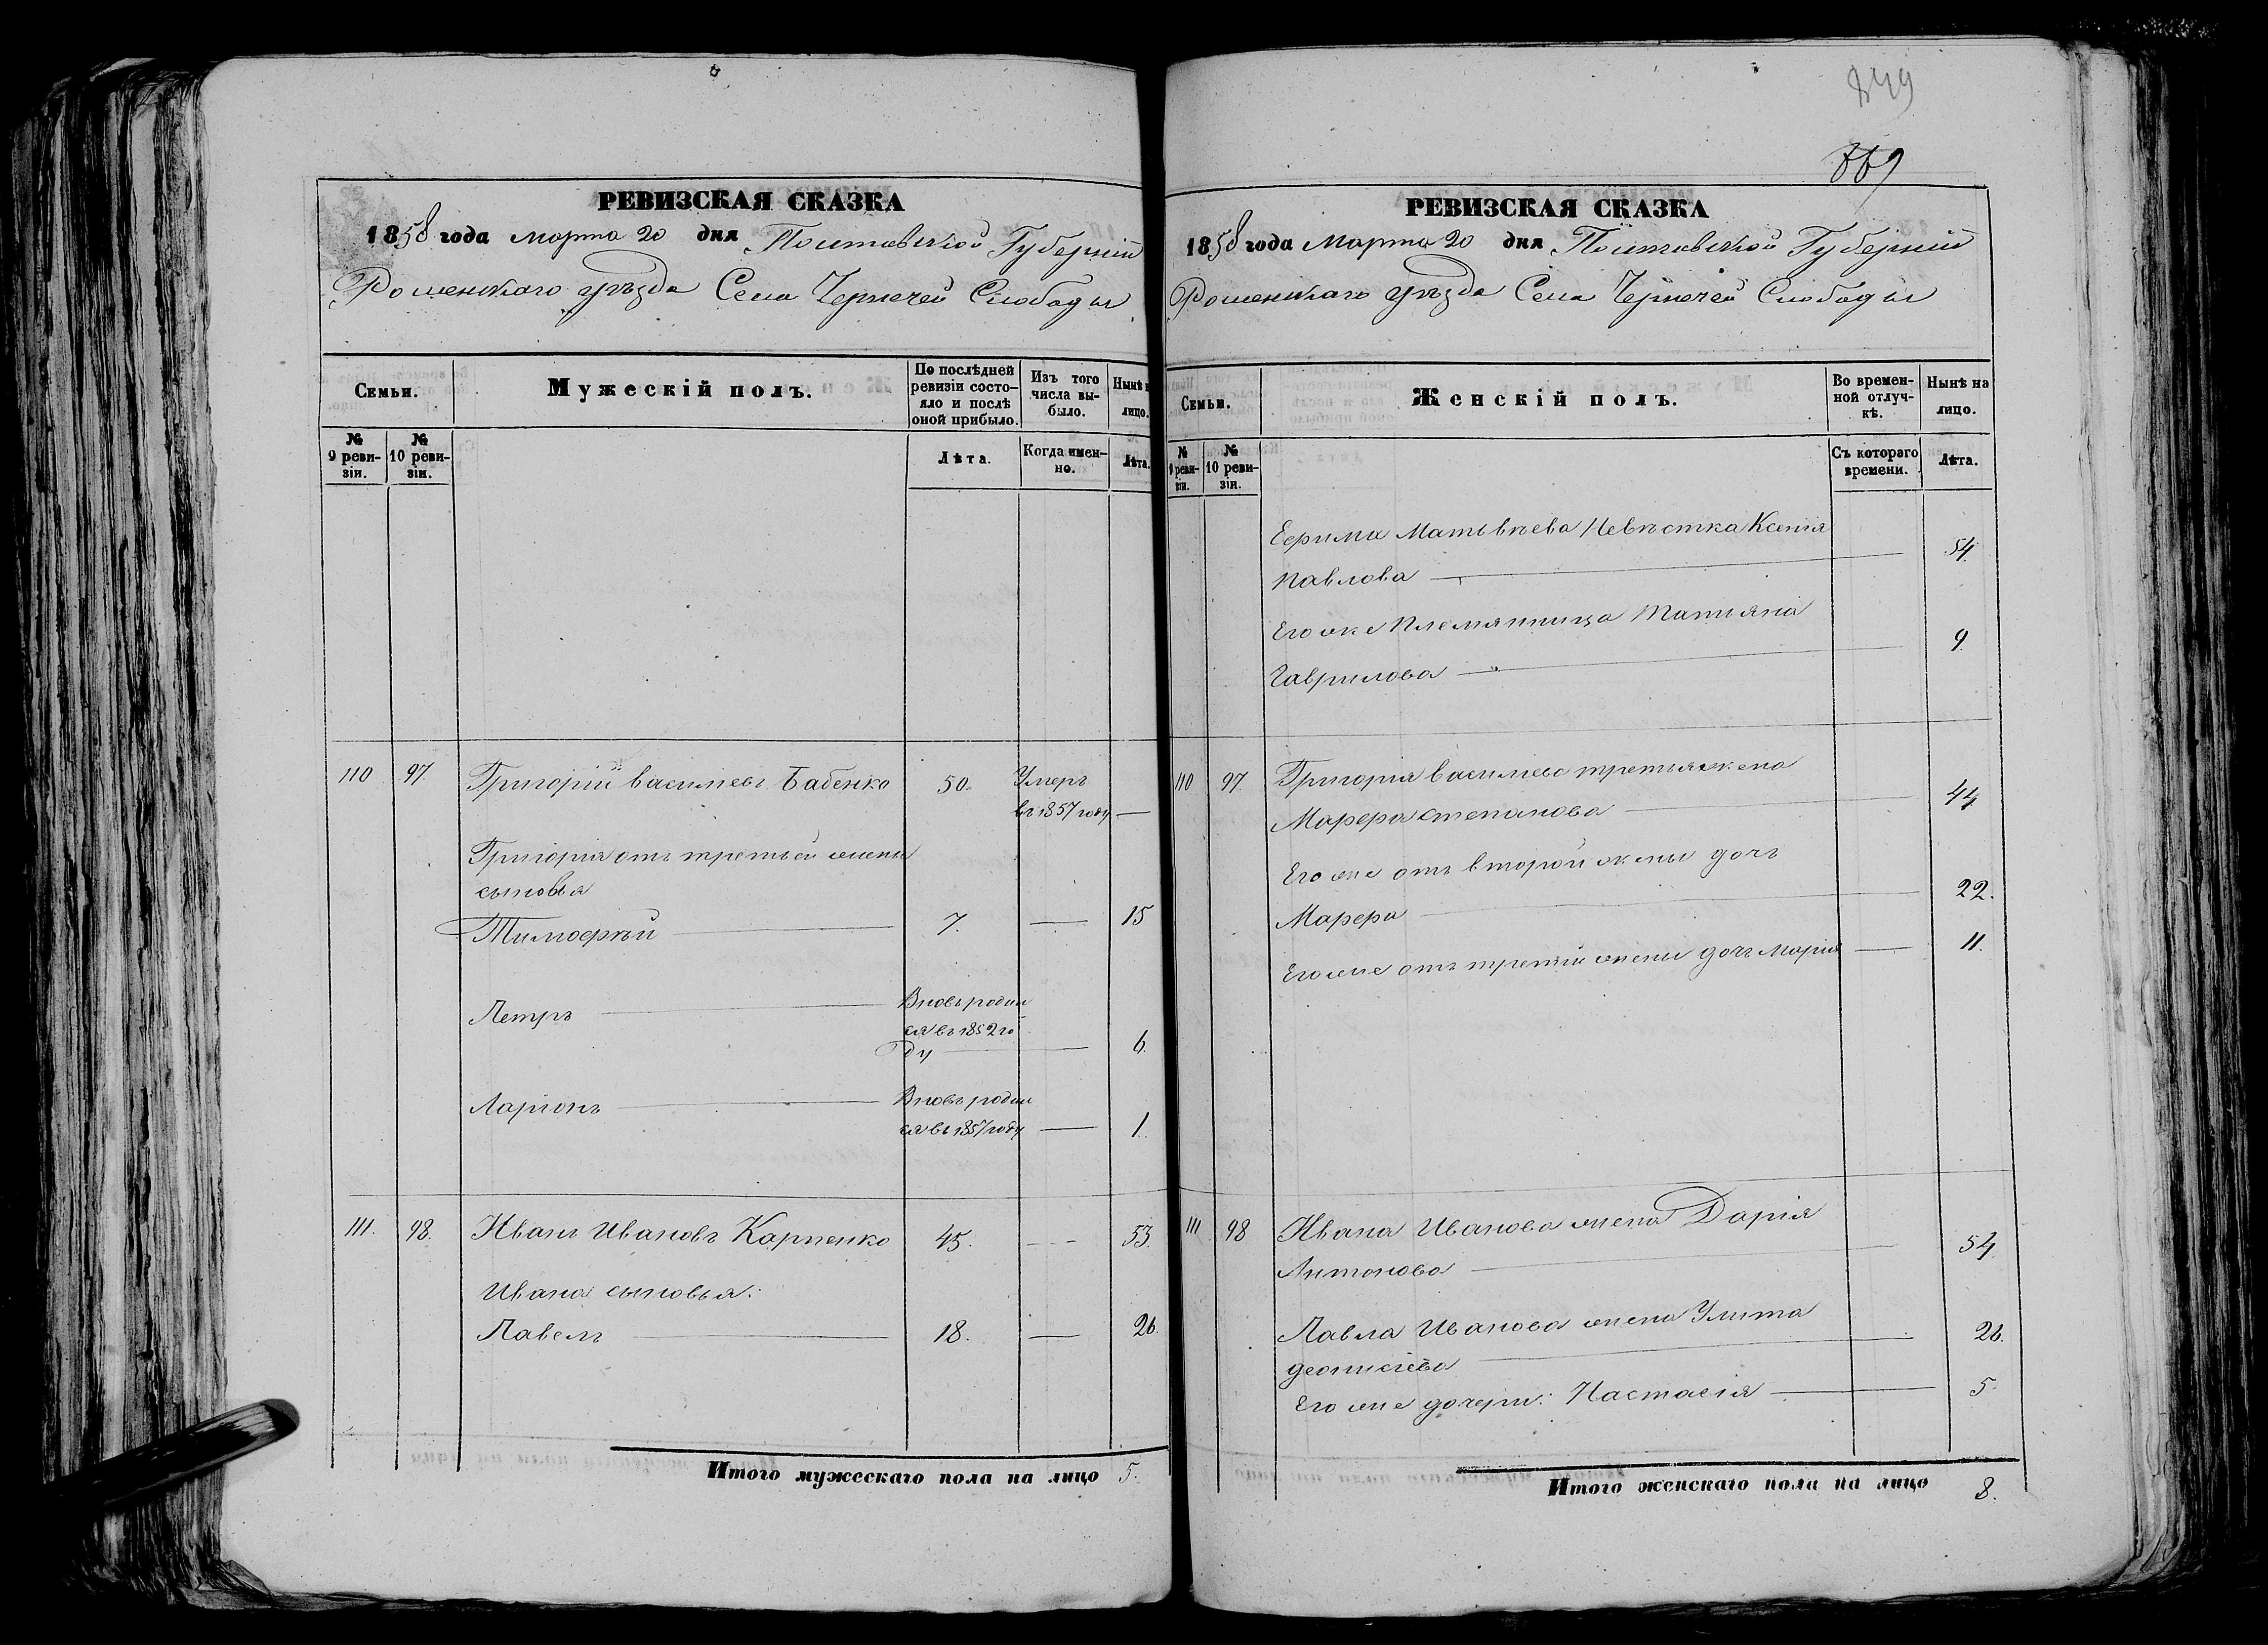 РЕВИЗСКАЯ СКАЗКА
1858 года Марта 20 дня Полтавской Губерніи
Роменскаго уѣзда Села Чернечей Слободы
Семьи.
Мужескій полъ.
По послѣдней
ревизіи состо-
яло и послѣ
оной прибыло.
Изъ того
числа вы-
было.
Нынѣ н
лицо.
№
9 реви-
зіи.
№
10 реви-
зіи.
Лѣта.
Когда имен-
но.
Лѣта.
110 97. Григорій Васильевъ Бабенко 50. Умеръ
въ 1857 году —
Григорія отъ третьей жены
сыновья
Тимофѣй 7. — 15
Петръ Вновь родил
ся въ 1852 го
ду — 6.
Ларіонъ Вновь родил
ся въ 1857 году — 1.
111. 98. Иванъ Ивановъ Карпенко 45. — 53.
Ивана сыновья:
Павелъ 18. — 26.
Итого мужескаго пола на лицо 5.
849
РЕВИЗСКАЯ СКАЗКА
1858 года Марта 20 дня Полтавской Губерніи
Роменскаго уѣзда Села Чернечей Слободы
Семьи.
Женскій полъ.
Во времен-
ной отлуч-
кѣ.
Нынѣ на
лицо.
№
9 реви-
зіи.
№
10 реви-
зіи.
Съ котораго
времени.
Лѣта.
Ефима Матвѣева Невѣстка Ксенія
Павлова — 54.
Его же Племянница Татіяна
Гаврилова — 9.
110 97. Григорія Васильева третья жена
Марфа Степанова — 44
Его же отъ второй жены дочь
Марфа — 22.
Его же отъ третьей жены дочь Марія — 11.
111. 98 Ивана Иванова жена Дарія
Антонова — 54.
Павла Иванова жена Улита
Деонисіева — 26.
Его же дочери: Настасія — 5.
Итого женскаго пола на лицо 8.